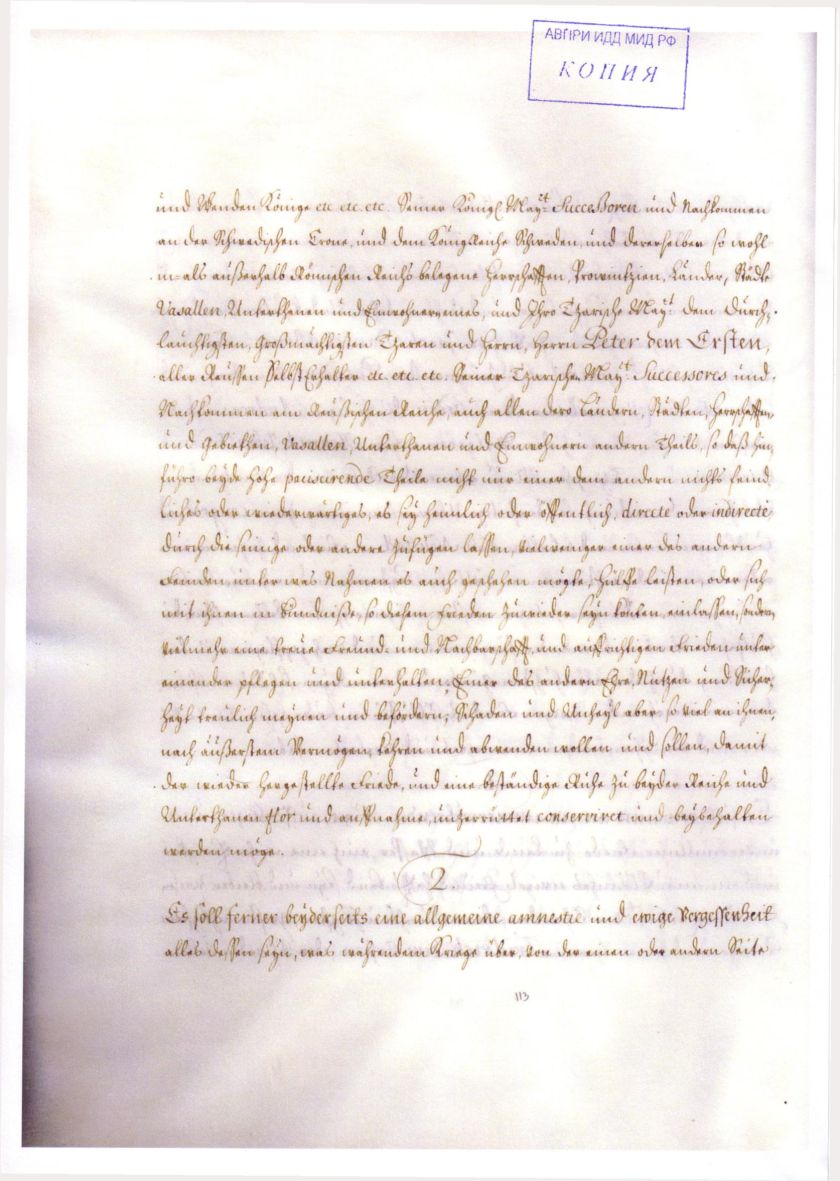 АВПРИ ИДД МИД РФ
КОПИЯ
und Wenden Könige etc. etc. etc. Seiner Königl. Mayt. Successoren und Nachkommen
an der Schwedischen Crone, und dem Königreiche Schweden, und deroselben so wohl
in= als außerhalb Römischen Reichs belegene Herrschafften, Provintzien, Länder, Städte
Vasallen, Unterthanen und Einwohnern eines, und Ihro Czarische Mayt. dem Durch-
lauchtigsten, Großmächtigsten Czaren und Herrn, Herrn Peter dem Ersten,
aller Reussen SelbstErhalter etc. etc. etc. Seiner Czarischen Mayt. Successores und
Nachkommen am Reußischen Reiche, auch allen dero Ländern, Städten, Herrschafften
und Gebiethen, Vasallen, Unterthanen und Einwohnern andern Theils, so daß hin-
führo beyde hohe paciscirende Theile nicht nur einer dem andern nichts feind-
liches oder wiederwärtiges, es sey heimlich oder öffentlich, directè oder indirectè
durch die seinige oder andere zufügen lassen, vielweniger einer des andern
Feinden, unter was Nahmen es auch geschehen mögte, Hülffe leisten, oder sich
mit ihnen in Bündniße, so diesem Frieden zuwieder seyn könten, einlassen, sondern
vielmehr eine treue Freund- und Nachbarschafft, und auffrichtigen Frieden unter
einander pflegen und unterhalten, Einer des andern Ehre, Nutzen und Sicher-
heyt treulich meynen und befördern, Schaden und Unheyl aber so viel an ihnen,
nach äußerstem Vermögen, kehren und abwenden wollen und sollen, damit
der wieder hergestellte Friede, und eine beständige Ruhe zu beyder Reiche und
Unterthanen flor und auffnahme, unzerrüttet conserviret und beybehalten
werden möge.
2.
Es soll ferner beyderseits eine allgemeine amnestie und ewige Vergessenheit
alles dessen seyn, was währendem Kriege über, von der einen oder andern Seite
113